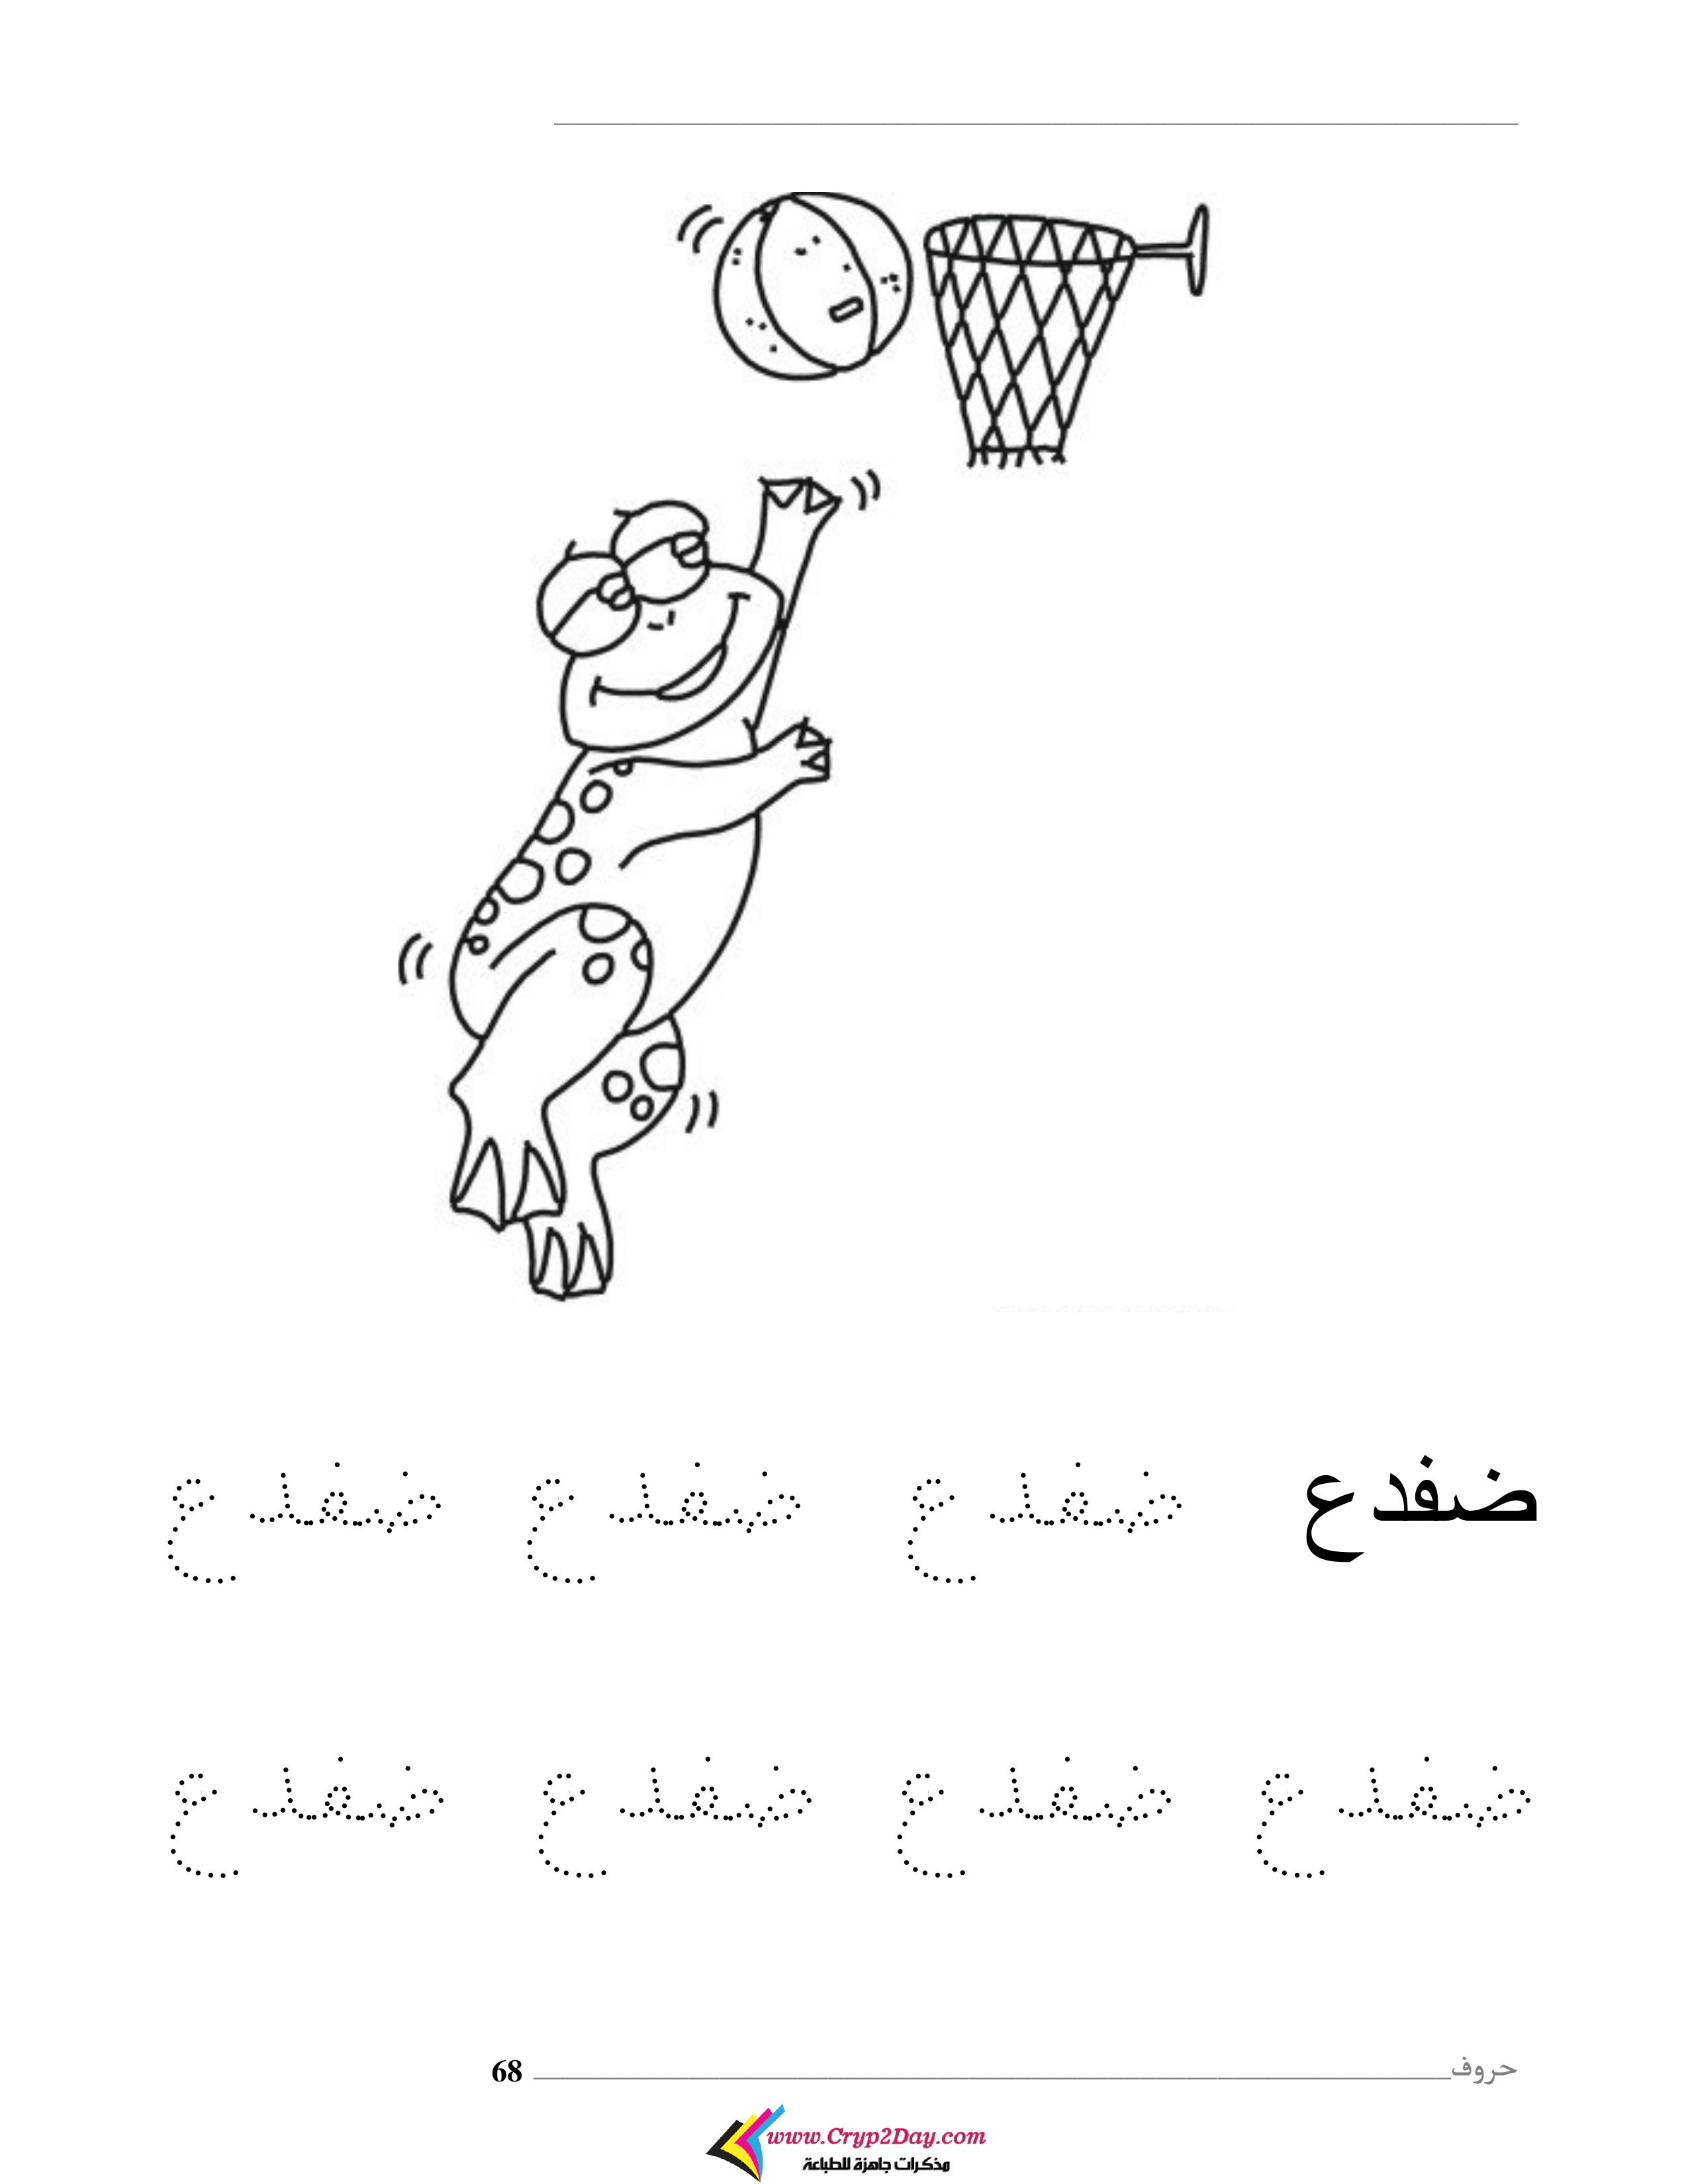 ضفدع ضفدع ضفدع ضفدع
ضفدع ضفدع ضفدع ضفدع
حروف 68
www.Cryp2Day.com
مذكرات جاهزة للطباعة